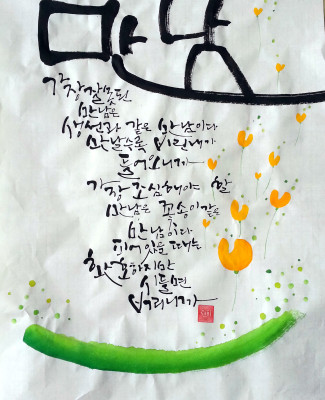 만남
가장 잘못된
만남은
생선과 같은 만남이다
만날수록 비린내가
묻어오니까
가장 조심해야 할
만남은 꽃송이같은
만남이다
피어있을 때는
환호하지만
시들면
버리니까